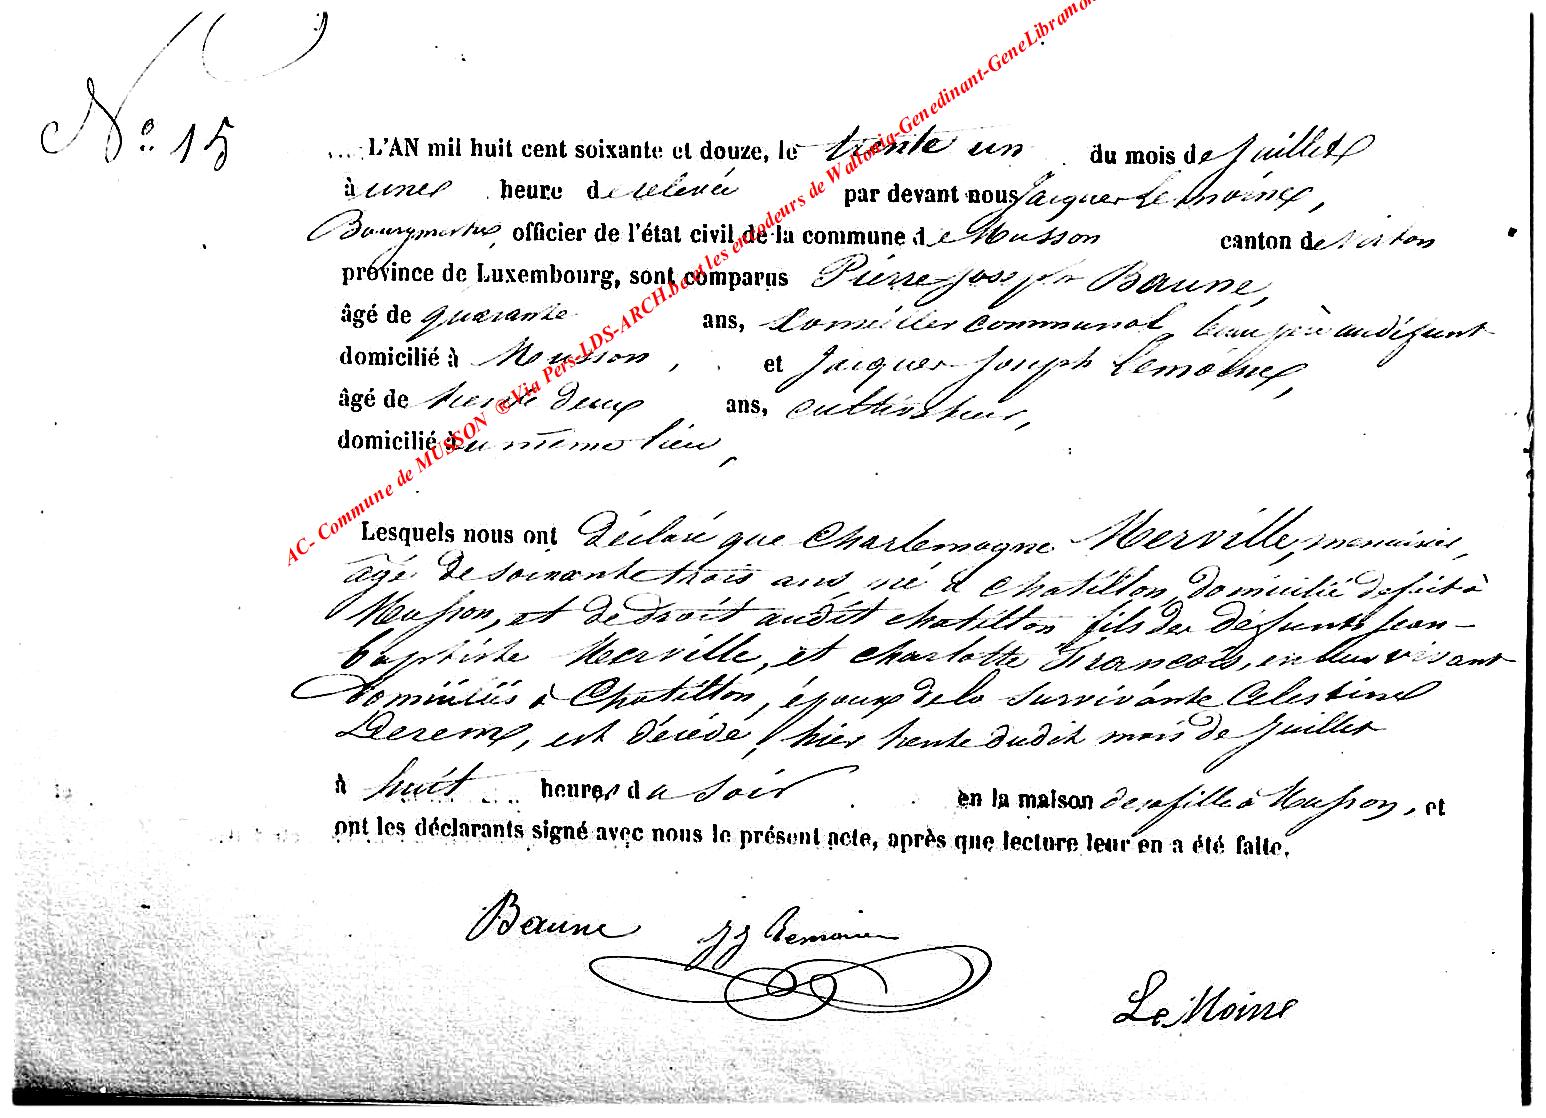 N° 15
L'AN mil huit cent soixante et douze, le trente un du mois de Juillet
à une heure de relevée par devant nous Jacques Lemoine,
Bourgmestre, officier de l'état civil de la commune de Musson canton de Virton
province de Luxembourg, sont comparus Pierre Joseph Baune,
âgé de quarante ans, Conseiller communal, beau père au défunt
domicilié à Musson, et Jacques Joseph Lemoine,
âgé de trente deux ans, cultivateur,
domicilié au même lieu,
Lesquels nous ont déclaré que Charlemagne Merville, menuisier,
âgé de soixante trois ans, né à Chatillon, domicilié de fait à
Musson, et de droit audit Chatillon fils des défunts Jean-
baptiste Merville, et Charlotte François, en leur vivant
domiciliés à Chatillon, époux de la survivante Celestine
est décédé, hier trente dudit mois de Juillet
à huit heures du soir en la maison de sa fille à Musson, et
ont les déclarants signé avec nous le présent acte, après que lecture leur en a été faite.
Baune JJ Lemoine
LeMoine
AC- Commune de MUSSON ®Via Pers-LDS-ARCH.be et les encodeurs de Wallonia-Genedinant-GeneLibramon